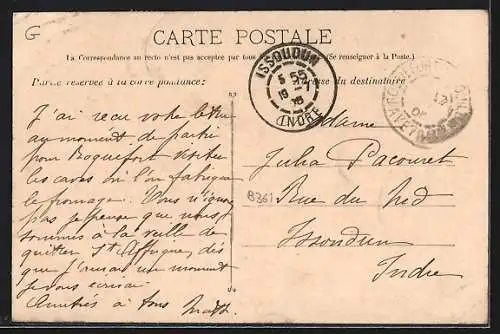 G
CARTE POSTALE
La Correspondance au recto n'est pas acceptée par tous (Se renseigner à la Poste.)
Partie réservée à la correspondance
Adresse du destinataire
ISSOUDUN
5 55
19 -1
INDRE
J'ai reçu votre lettre
au moment de partir
pour Roquefort visiter
les caves où l'on fabrique
le fromage. Vous n'ignorez
pas je pense que nous
sommes à la veille de
quitter St Affrique, dès
que j'aurai un moment
je vous écrirai
Amitiés à tous
Madame
Julia Pacouret
8361
Rue du
Issoudun
Indre